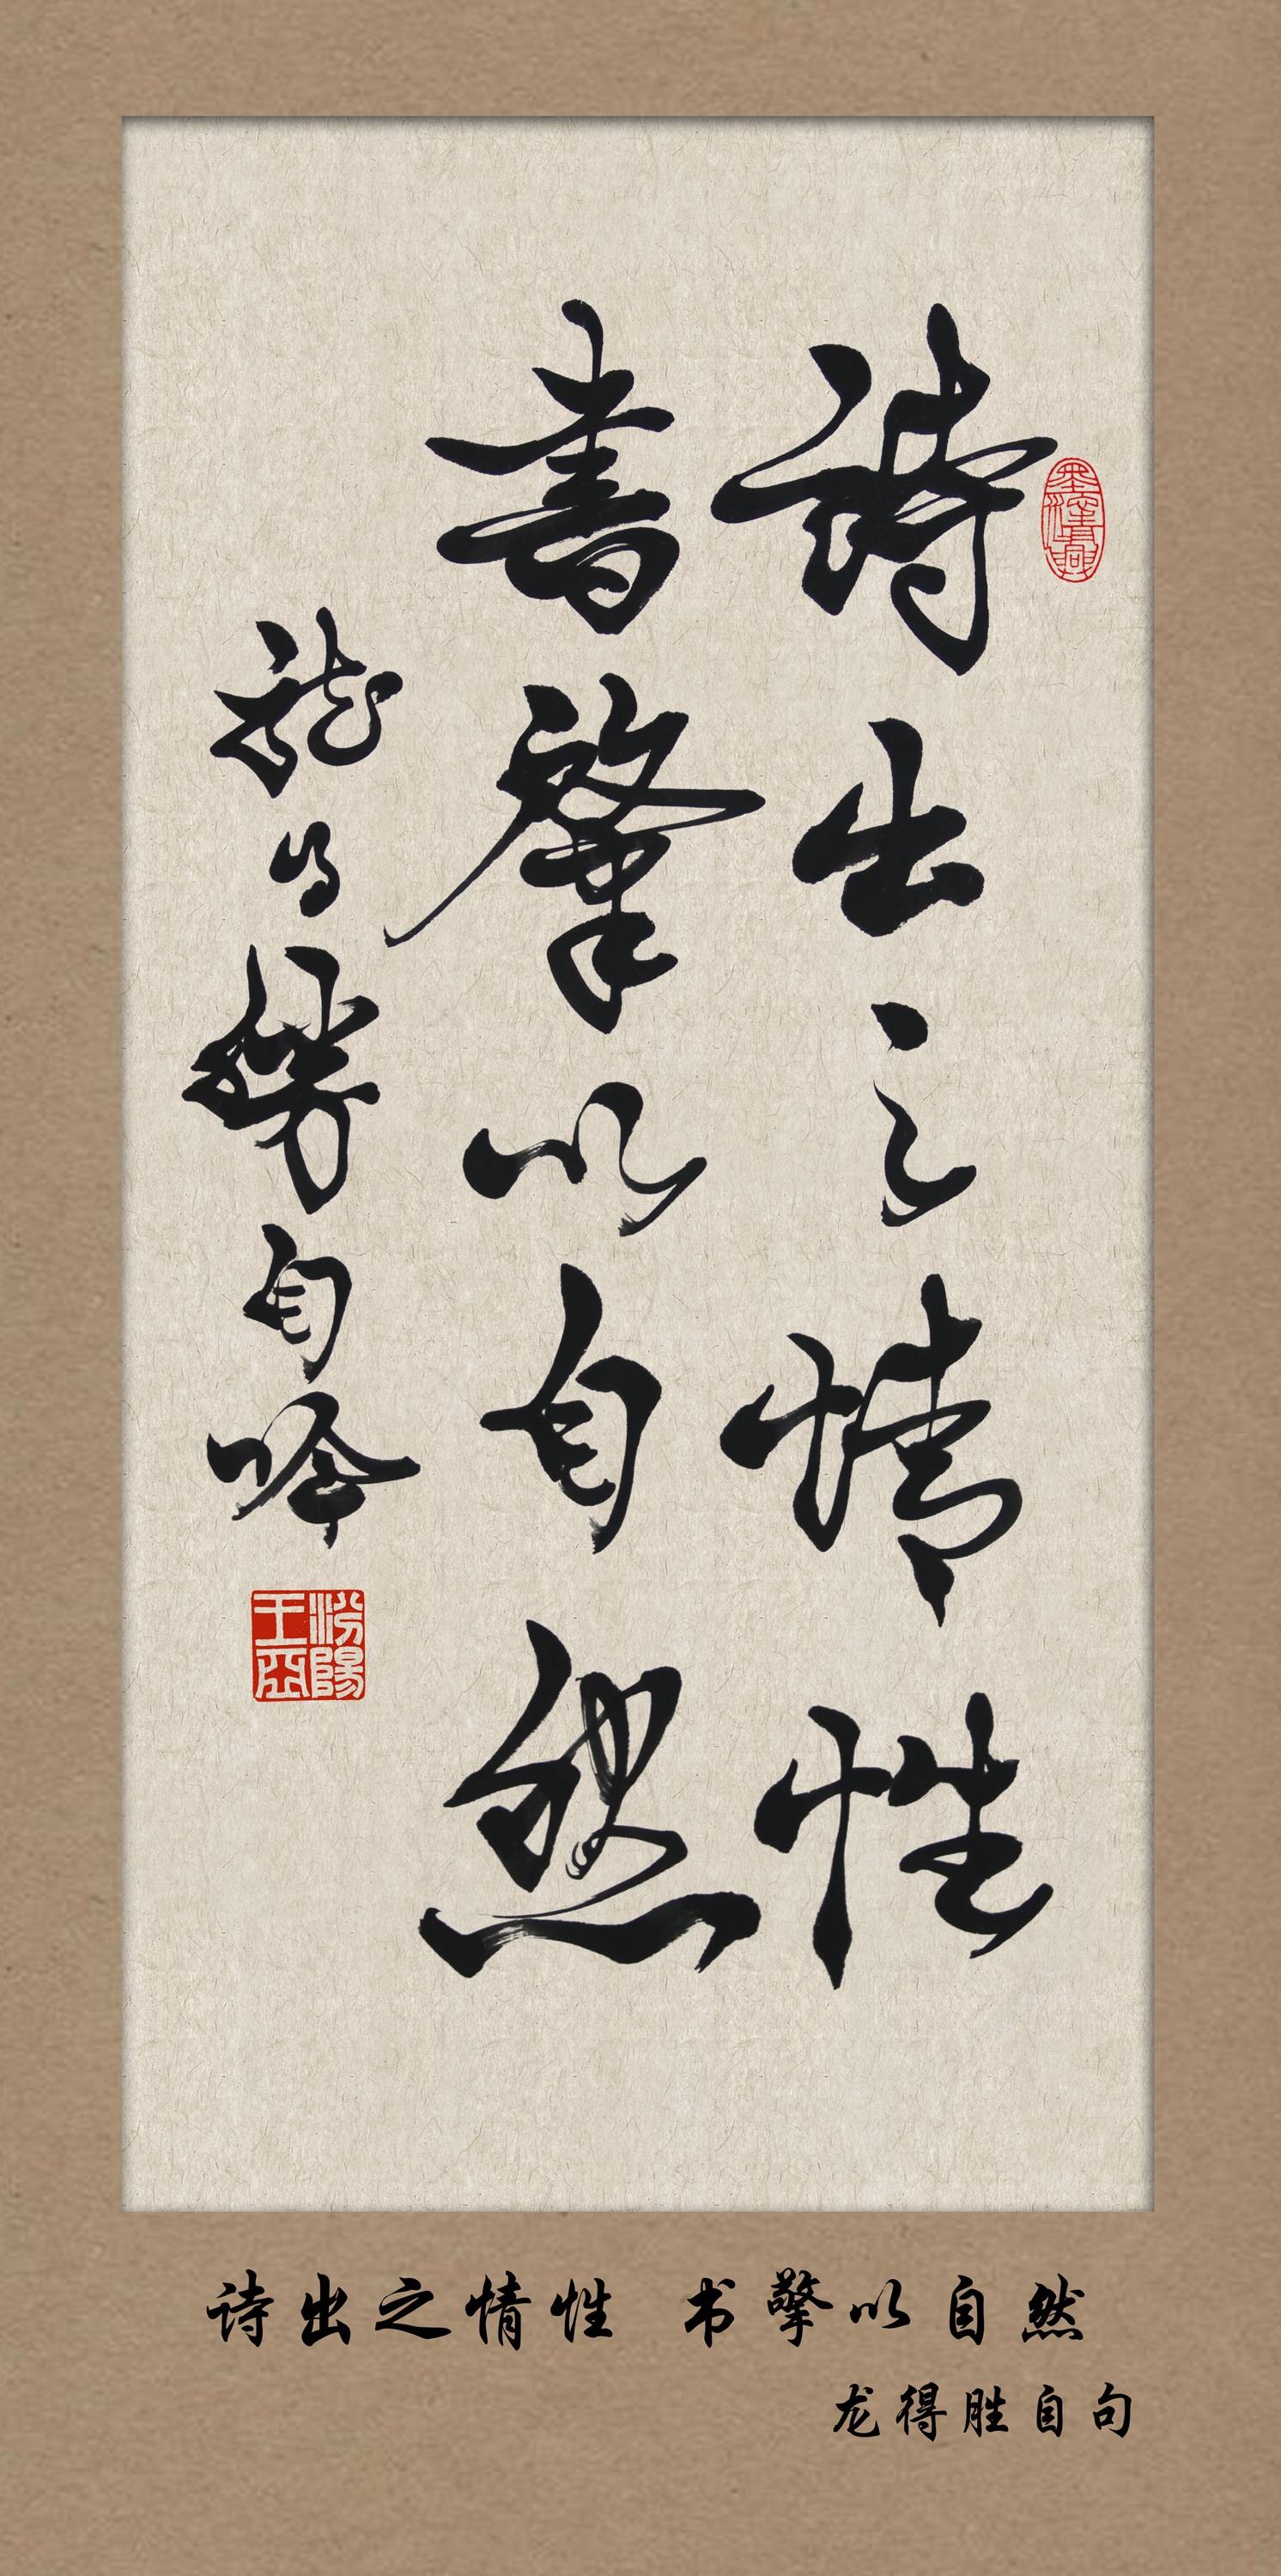 詩出之情性
書擎以自然
龍得勝自吟
汾陽
王
诗出之情性 书擎以自然
龙得胜自句